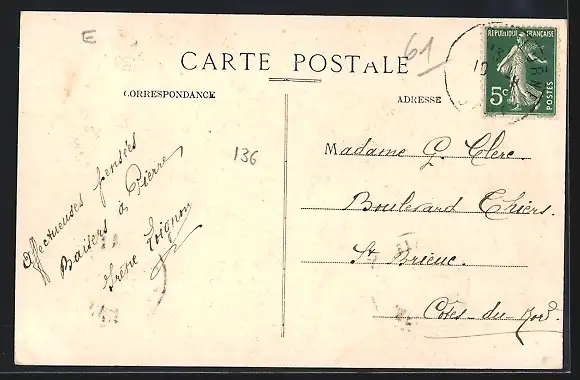 E
61
CARTE POSTALE
RÉPUBLIQUE FRANÇAISE
5c
POSTES
CORRESPONDANCE
ADRESSE
136
Affectueuses pensées
Baisers à Pierre
Irène
Madame G. Clerc.
Boulevard Thiers.
St Brieuc.
Côtes-du-Nord.